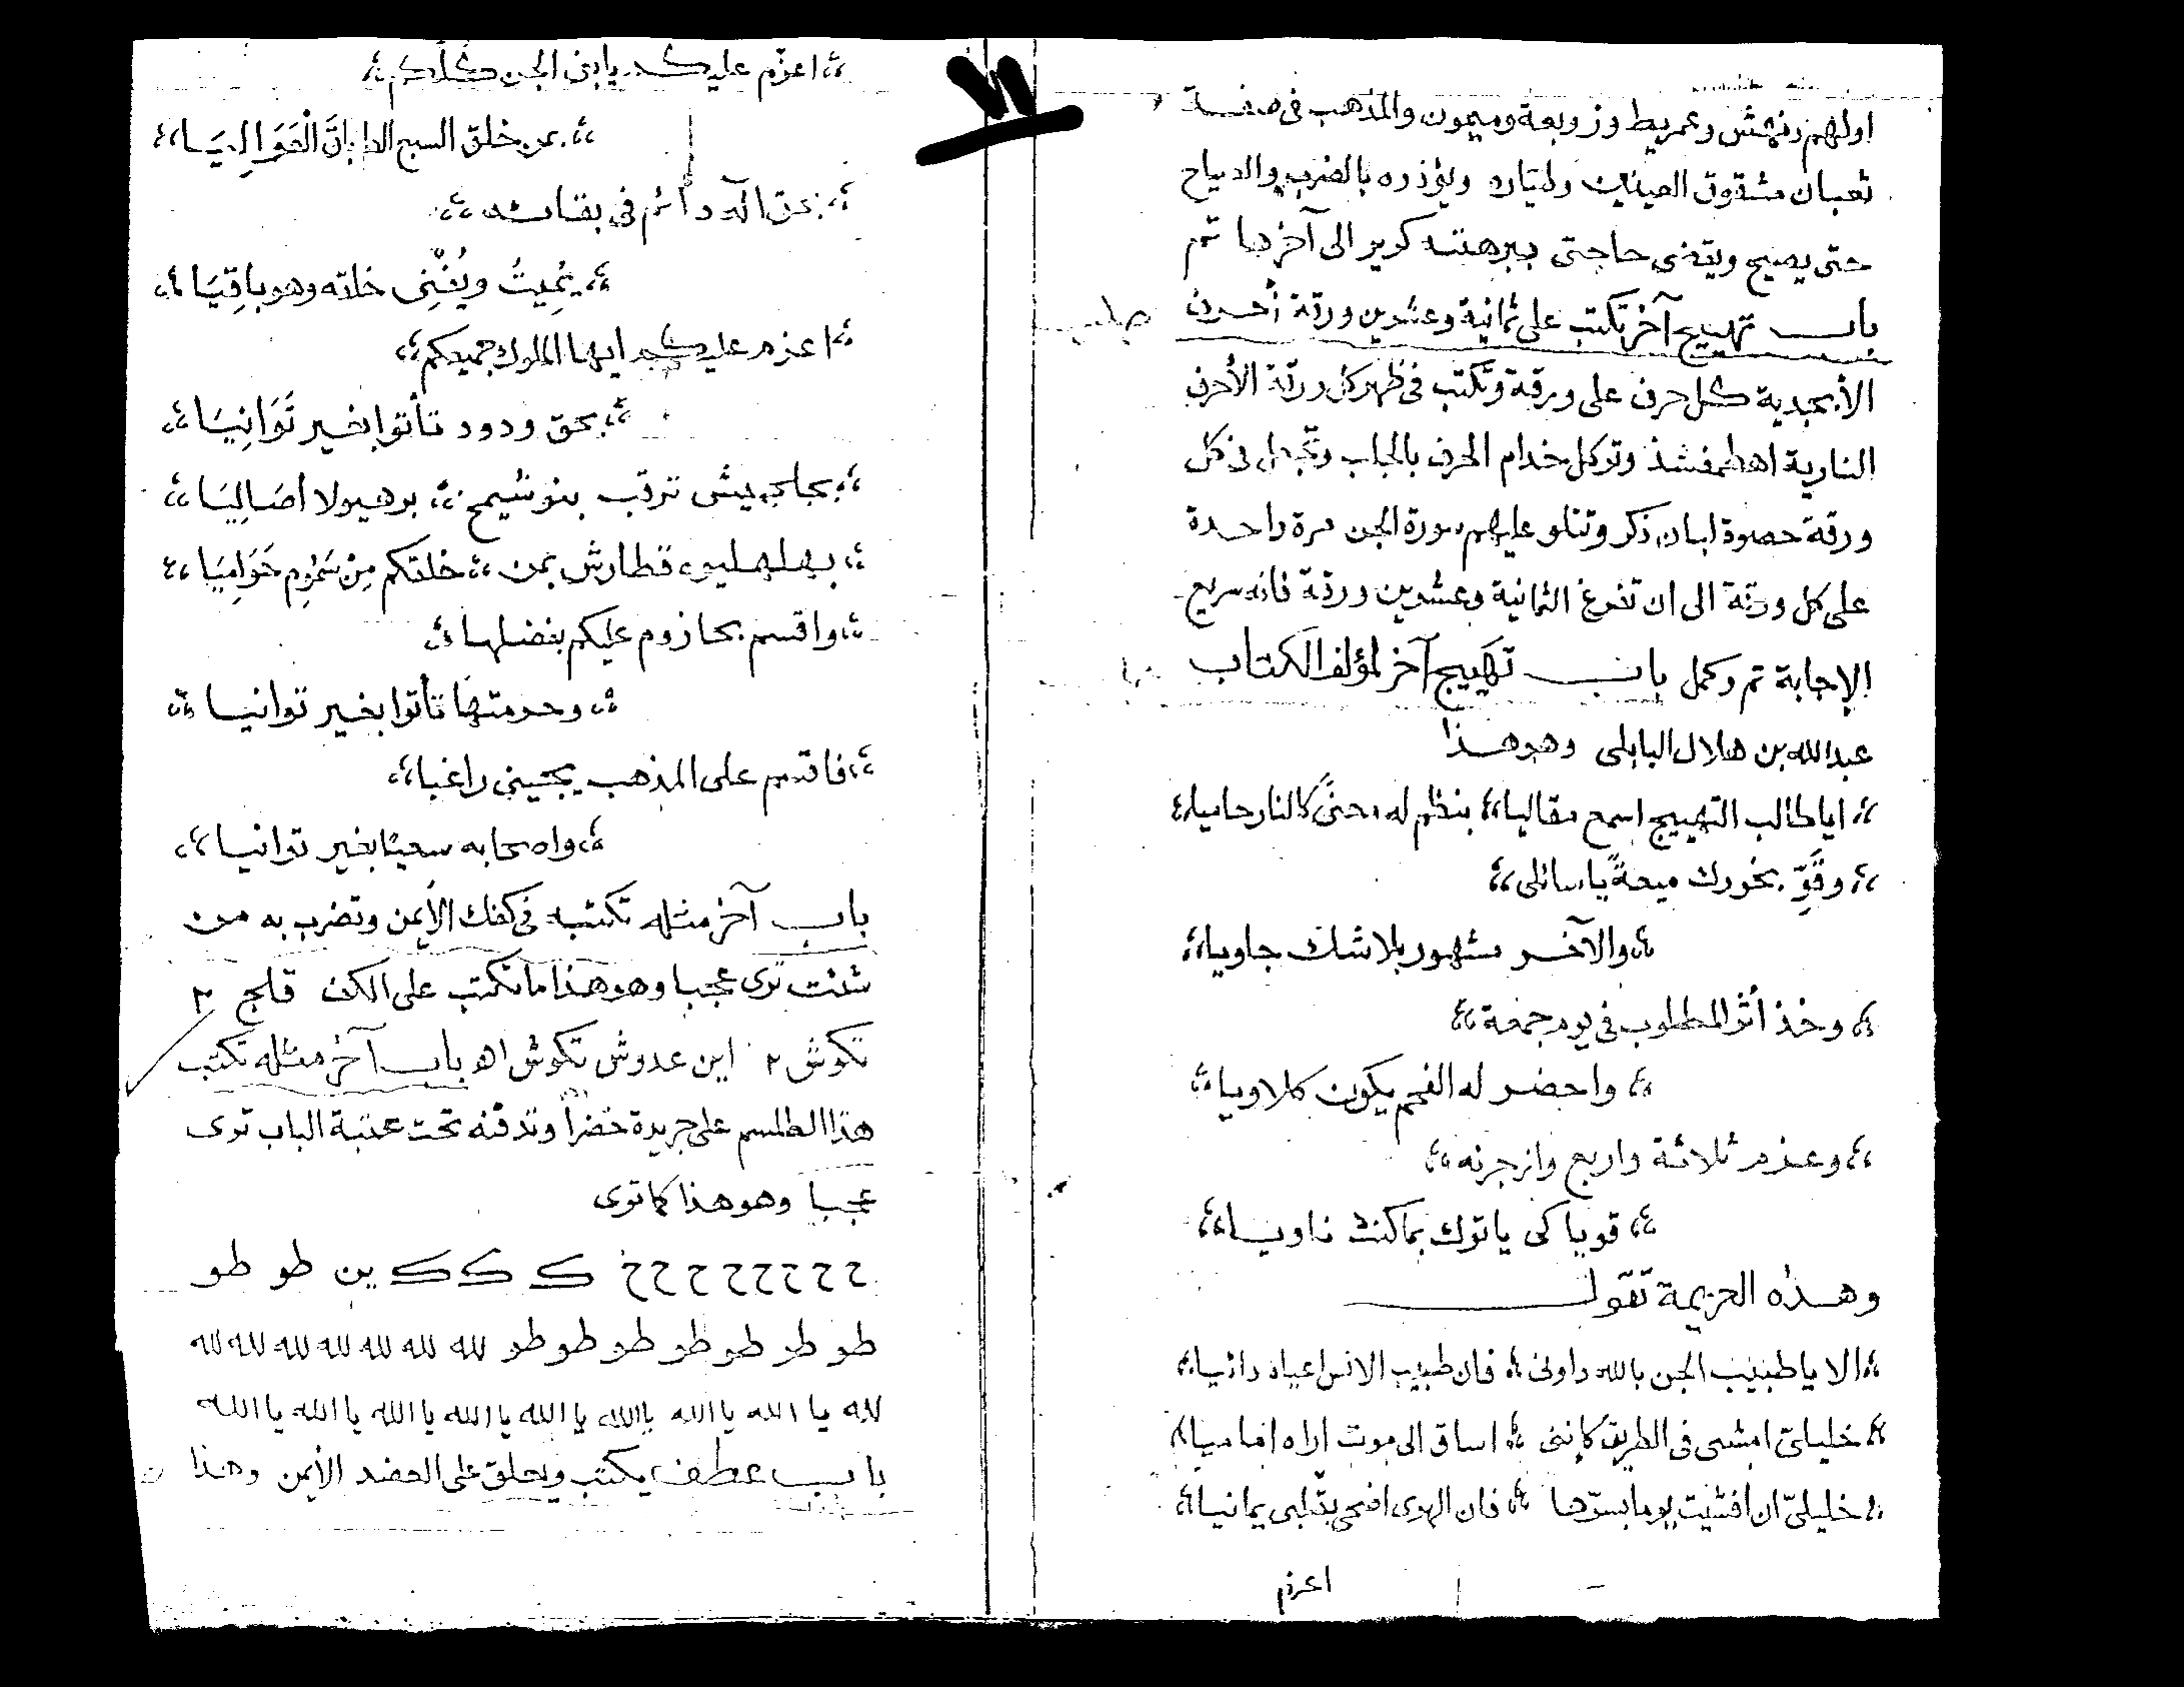 اولهم دنهش وعمريط وزوبعة وميمون والمذهب في صفة
ثعبان مشقوق العينين وليتان ولينذروه بالضرب والصياح
حتى يصيح ويقضى حاجتى ببرهتيه كرير الى آخرها تم
باب تهييج آخر تكتب على ثمانية وعشرين ورقة أحرف
الأبجدية كل حرف على ورقة وتكتب فى ظهر كل ورقة الأحرف
النارية اهطمفشذ وتوكل خدام الحرف بالجلب وتجعل فى كل
ورقة حصوة لبان ذكر وتتلو عليهم سورة الجن مرة واحدة
على كل ورقة الى ان تفرغ الثمانية وعشرين ورقة فانه سريع
الإجابة تم وكمل باب تهييج آخر لمؤلف الكتاب
عبد الله بن هلال البابلى وهو هذا
ايا طالب التهييج اسمع مقاليا بنظم له حتى كالنار حاميا
وقَوِّ بخورك ميعةً يا سائلى
والآخر مشهور بلا شك جاويا
وخذ أثر المطلوب فى يوم جمعة
واحضر له الفحم يكون كلاويا
وعزم ثلاثة واربع وازجرنه
قويا كى ياتوك بما كنت ناويا
وهذه العزيمة تقول
الا يا طبيب الجن بالله داونى فان طبيب الانس اعياه دائيا
خليلىّ امشى فى الطريق كإننى اساق الى موت اراه اماميا
خليلىّ ان افشيت يوما بسرّها فان الهوى اضحى بقلبى يمانيا
اعزم
اعزّم عليكم يا بنى الجن كلكم
بمن خلق السبع الطباقَ الْعَوَالِيَا
بحق اله دائم فى بقائه
يُمِيتُ ويُفْنِى خلقه وهو باقِيَا
اعزم عليكم ايها الملوك جميعكم
بحق ودود تأتوا بغير تَوَانِيَا
بجلجميش ترقب بنو شيمخ برهيولا أصَالِيَا
بهلهليو قطارش بمن خلقكم مِنْ سَمُومٍ حَوَامِيَا
واقسم بحازوم عليكم بفضلها
وحرمتها تأتوا بغير توانيا
فاقسم على المذهب يجينى راغبا
واصحابه سعيًا بغير توانيا
باب آخر مثله تكتبه فى كفك الأيمن وتضرب به من
شئت ترى عجبا وهو هذا ما تكتب على الكف قلج ٢
تكوش ٢ اين عدوش تكوش اهـ باب آخر مثله تكتب
هذا الطلسم على جريدة خضرا وتدفنه تحت عتبة الباب ترى
عجبا وهو هذا كما ترى
ح ح ح ح ح ح ح خ ك ك ك ين طو طو
طو طو طو طو طو طو طو لله لله لله لله لله لله لله
لله يا الله يا الله يا الله يا الله يا الله يا الله يا الله يا الله
باب عطف يكتب ويعلق على العضد الأيمن وهذا